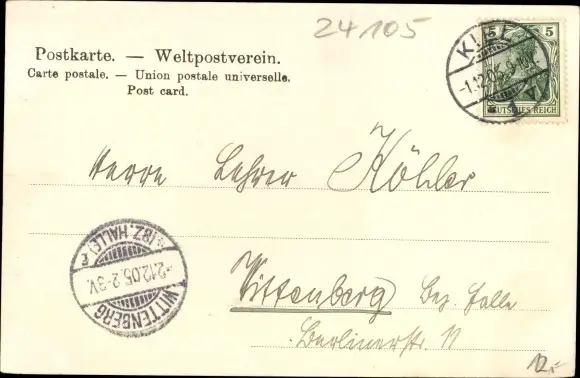 24105
Postkarte. — Weltpostverein.
Carte postale. — Union postale universelle.
Post card.
5 5
DEUTSCHES REICH
KIEL
-1.12.05.
Herrn Lehrer Köhler
Wittenberg Bez. Halle
Berlinerstr. 11
WITTENBERG
-2.12.05.2-3V.
(BZ. HALLE)
12,-